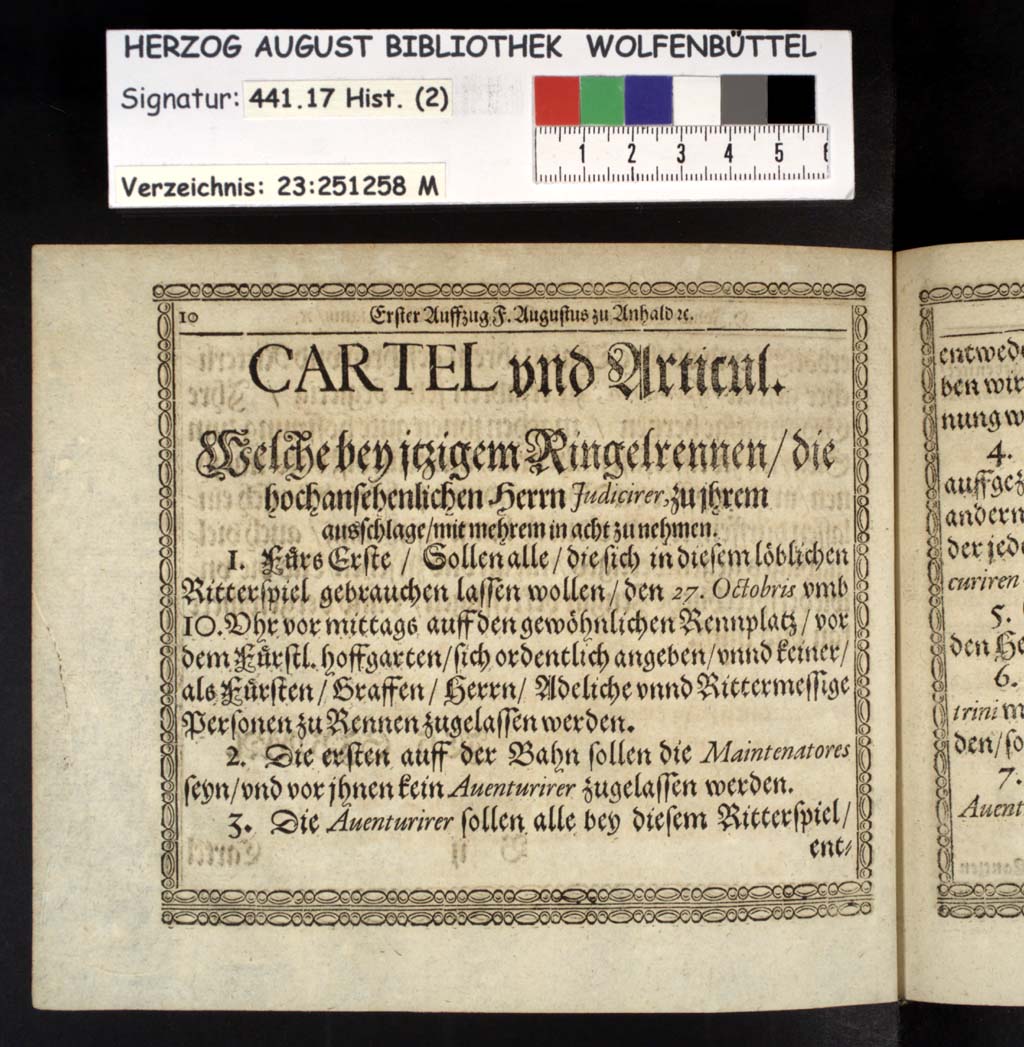 HERZOG AUGUST BIBLIOTHEK WOLFENBÜTTEL
Signatur: 441.17 Hist. (2)
1 2 3 4 5 6
Verzeichnis: 23:251258 M
10 Erster Auffzug F. Augustus zu Anhald ꝛc.
CARTEL vnd Articul.
Welche bey jtzigem Ringelrennen/ die
hochansehenlichen Herrn Judicirer, zu jhrem
ausschlage/ mit mehrem in acht zu nehmen.
1. Fürs Erste / Sollen alle / die sich in diesem löblichen
Ritterspiel gebrauchen lassen wollen/ den 27. Octobris vmb
10. Vhr vor mittags auff den gewöhnlichen Rennplatz/ vor
dem Fürstl. hoffgarten/ sich ordentlich angeben/ vnnd keiner/
als Fürsten/ Graffen/ Herrn/ Adeliche vnnd Rittermessige
Personen zu Rennen zugelassen werden.
2. Die ersten auff der Bahn sollen die Maintenatores
seyn/ vnd vor jhnen kein Auenturirer zugelassen werden.
3. Die Auenturirer sollen alle bey diesem Ritterspiel/
ent⸗
entwede
ben wir
nung w
4.
auffgez
andern
der jede
curiren
5.
den He
6.
trini m
den/ so
7.
Auent